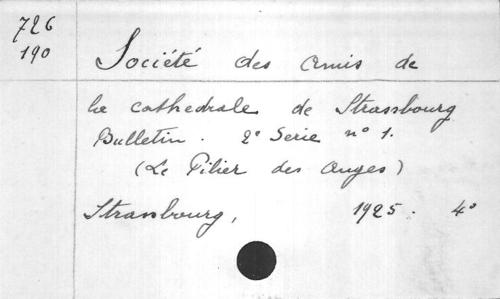 726
190
Société des amis de
la cathedrale de Strassbourg
Bulletin. 2e Serie no 1.
(Le Pilier des anges)
Strasbourg, 1925. 4o